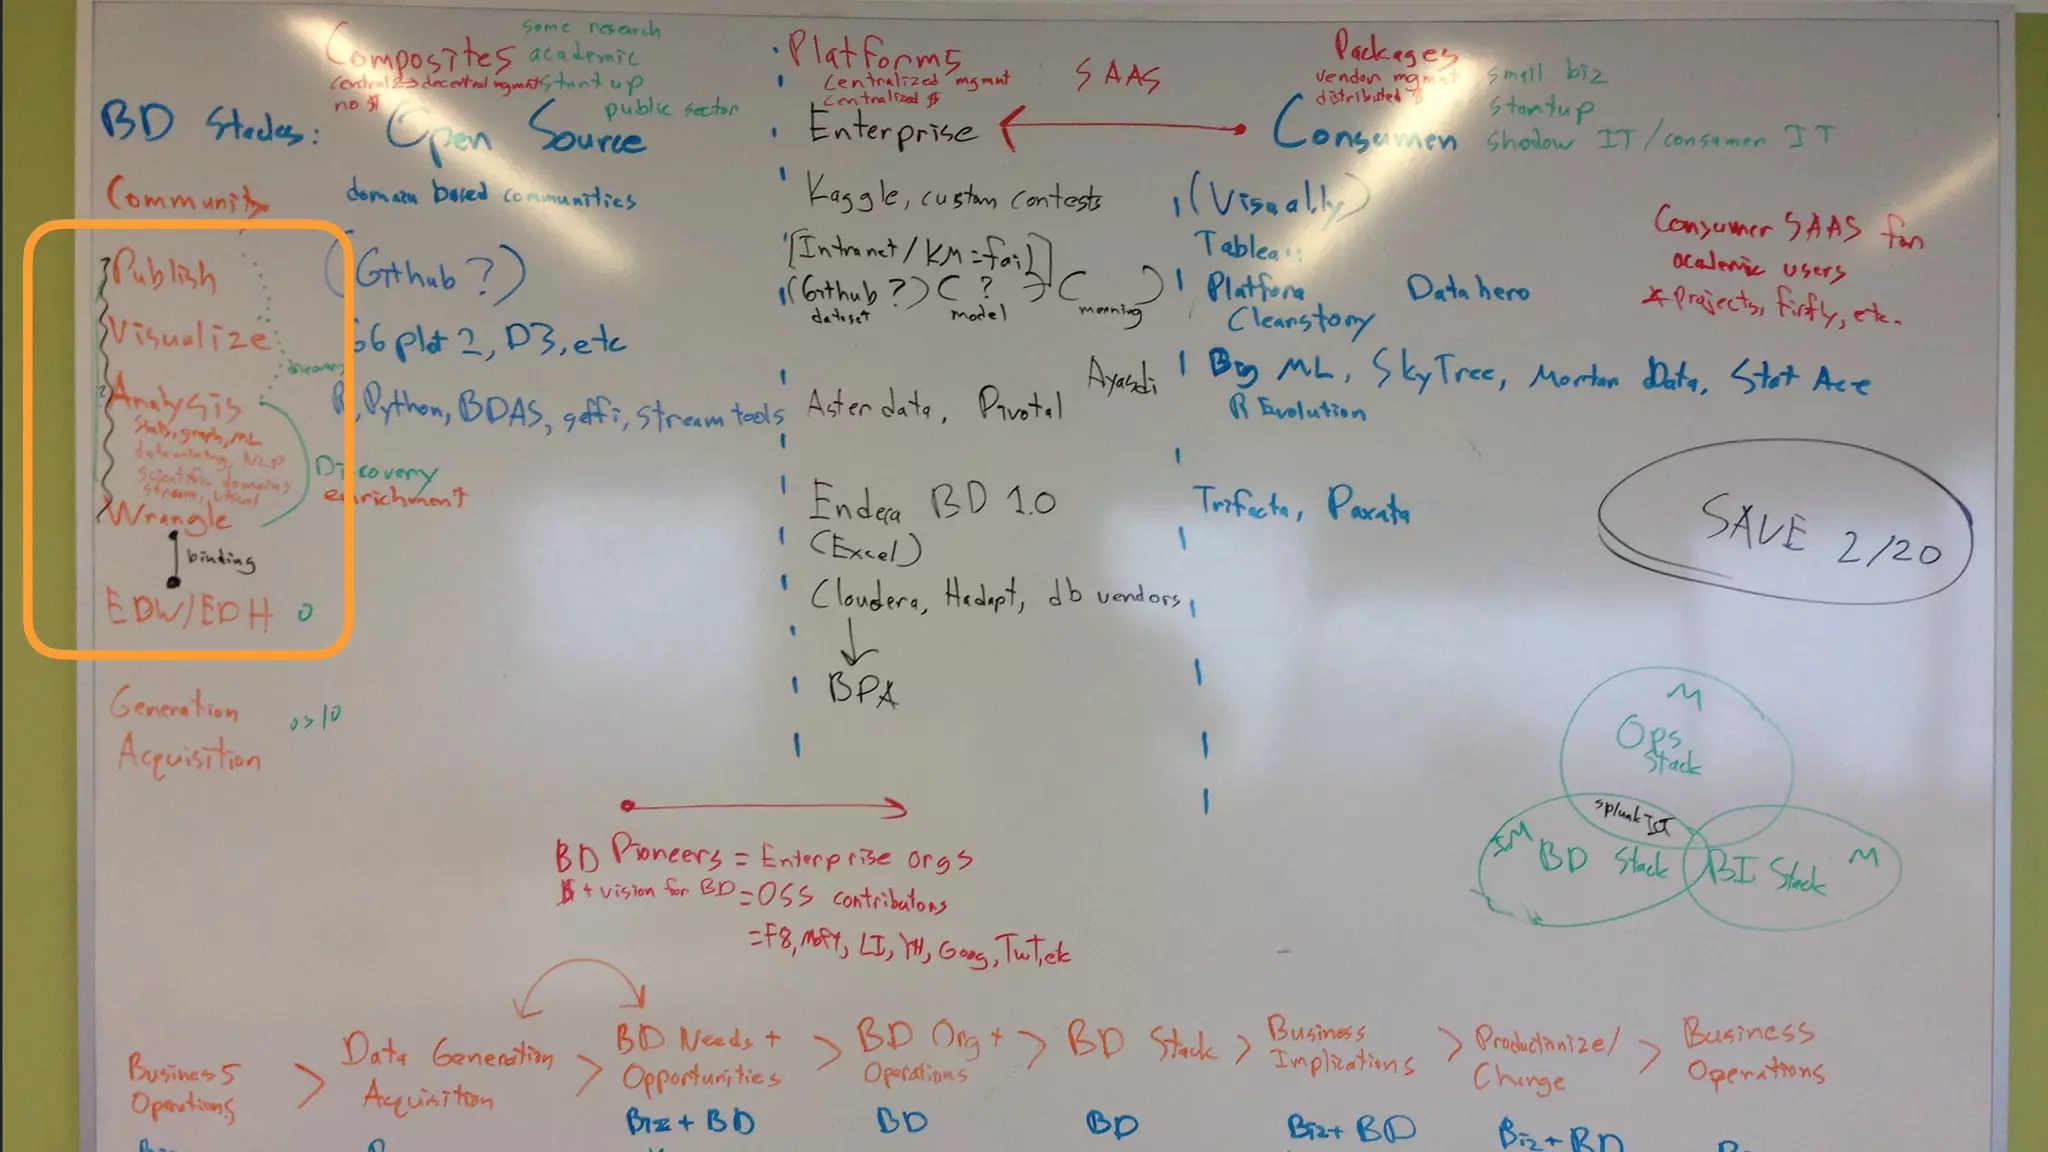 some research
Composites academic
central → decentral mgmnt startup
no $
public sector
Platforms
centralized mgmnt
centralized $
SAAS
Packages
vendor mgmnt small biz
distributed $ startup
BD Stacks: Open Source
Enterprise
Consumer shadow IT/consumer IT
Community
domain based communities
Kaggle, custom contests
(Visually)
Publish
(Github ?)
[Intranet/KM=fail]
(Github ?) ( ? ) ( )
dataset model meaning
Tableau
Platfora
Datahero
Clearstory
Consumer SAAS for
academic users
* projects, firfly, etc.
Visualize
GGplot2, D3, etc
Analysis
stats, graph, ML
datamining, NLP
scientific domains
stream, visual
R, Python, BDAS, geffi, stream tools
Aster data, Pivotal
Ayasdi
Big ML, SkyTree, Mortar Data, Stat Ace
R Evolution
Discovery
enrichment
Wrangle
binding
Endeca BD 1.0
(Excel)
Trifacta, Paxata
SAVE 2/20
EDW/EDH 0
Cloudera, Hadapt, db vendors
BPA
Generation os/0
Acquisition
M
Ops
Stack
splunk IoT
M
BD Stack
BI Stack
M
BD Pioneers = Enterprise orgs
$ + vision for BD = OSS contributors
= FB, LI, YH, Goog, Twt, etc
Business
Operations
>
Data Generation
Acquisition
>
BD Needs +
Opportunities
>
BD Org +
Operations
>
BD Stack
>
Business
Implications
>
Productionize/
Change
>
Business
Operations
Biz + BD
BD
BD
Biz + BD
Biz + BD